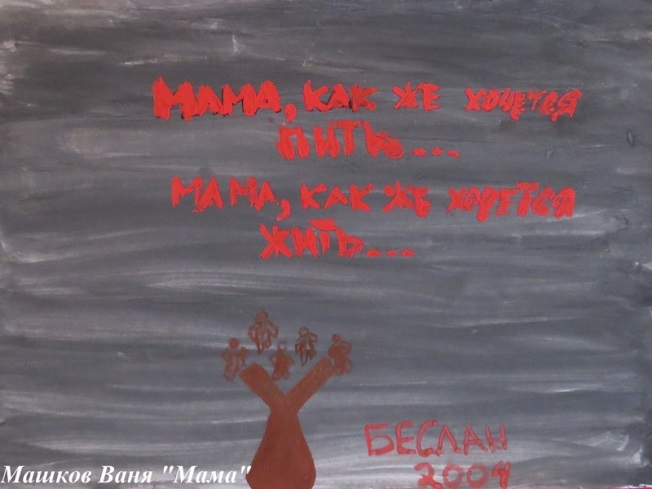 МАМА, КАК ЖЕ ХОЧЕТСЯ
ПИТЬ...
МАМА, КАК ЖЕ ХОЧЕТСЯ
ЖИТЬ...
БЕСЛАН
2004
Машков Ваня "Мама"